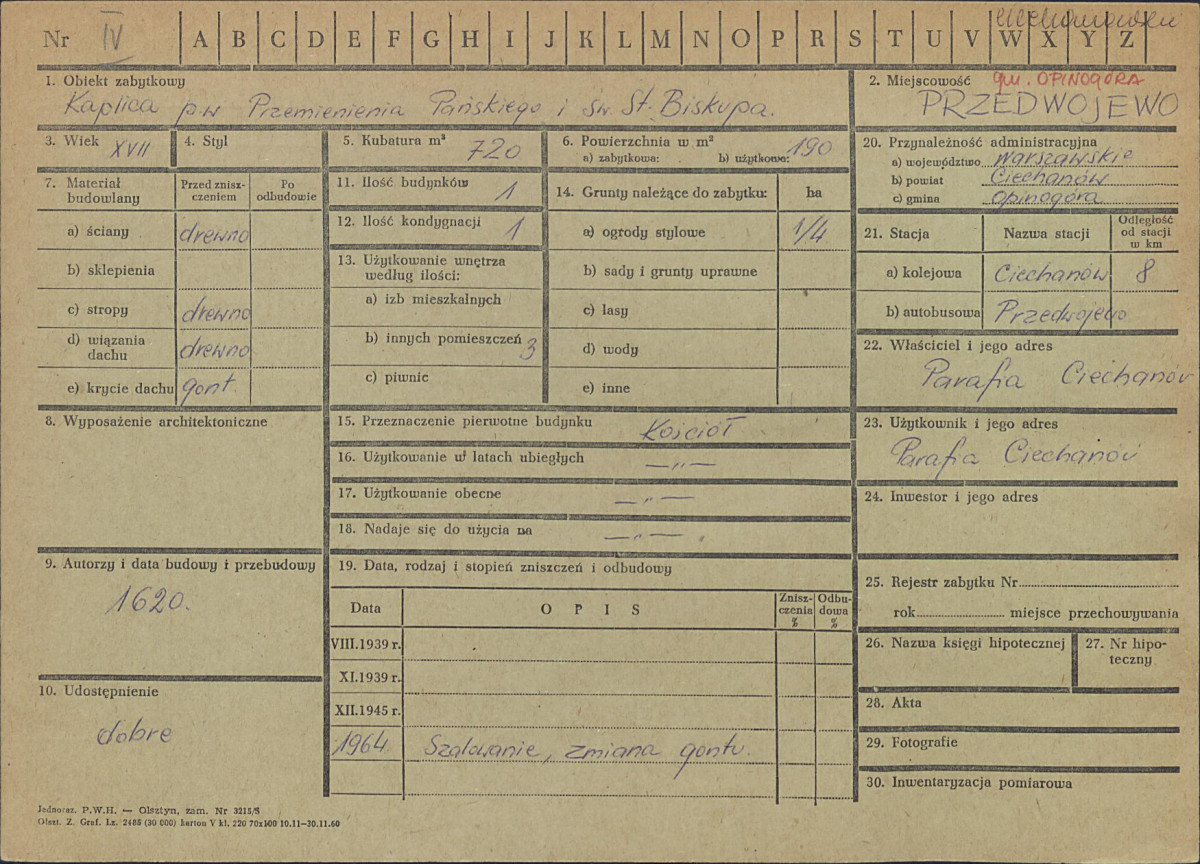 Nr IV A B C D E F G H I J K L M N O P R S T U V W X Y Z
1. Obiekt zabytkowy
Kaplica p.w Przemienienia Pańskiego i św. St. Biskupa.
2. Miejscowość gm. OPINOGÓRA
PRZEDWOJEWO
3. Wiek XVII
4. Styl
5. Kubatura m³ 720
6. Powierzchnia w m² 190
a) zabytkowa: b) użytkowa:
7. Materiał budowlany
Przed zniszczeniem
Po odbudowie
a) ściany drewno
b) sklepienia
c) stropy drewno
d) wiązania dachu drewno
e) krycie dachu gont.
8. Wyposażenie architektoniczne
9. Autorzy i data budowy i przebudowy
1620.
10. Udostępnienie
dobre
11. Ilość budynków 1
12. Ilość kondygnacji 1
13. Użytkowanie wnętrza według ilości:
a) izb mieszkalnych
b) innych pomieszczeń 3
c) piwnic
14. Grunty należące do zabytku: ha
a) ogrody stylowe 1/4
b) sady i grunty uprawne
c) lasy
d) wody
e) inne
15. Przeznaczenie pierwotne budynku Kościół
16. Użytkowanie w latach ubiegłych — „ —
17. Użytkowanie obecne — „ —
18. Nadaje się do użycia na — „ — .
19. Data, rodzaj i stopień zniszczeń i odbudowy
Data O P I S Zniszczenia % Odbudowa %
VIII.1939 r.
XI.1939 r.
XII.1945 r.
1964 Szalowanie, zmiana gontu.
20. Przynależność administracyjna
a) województwo warszawskie
b) powiat Ciechanów
c) gmina Opinogóra
21. Stacja Nazwa stacji Odległość od stacji w km
a) kolejowa Ciechanów 8
b) autobusowa Przedwojewo
22. Właściciel i jego adres
Parafia Ciechanów
23. Użytkownik i jego adres
Parafia Ciechanów
24. Inwestor i jego adres
25. Rejestr zabytku Nr
rok miejsce przechowywania
26. Nazwa księgi hipotecznej
27. Nr hipoteczny
28. Akta
29. Fotografie
30. Inwentaryzacja pomiarowa
Jednoraz. P.W.H. — Olsztyn, zam. Nr 3215/S
Olszt. Z. Graf. Lz. 2485 (30 000) karton V kl. 220 70x100 10.11—30.11.60